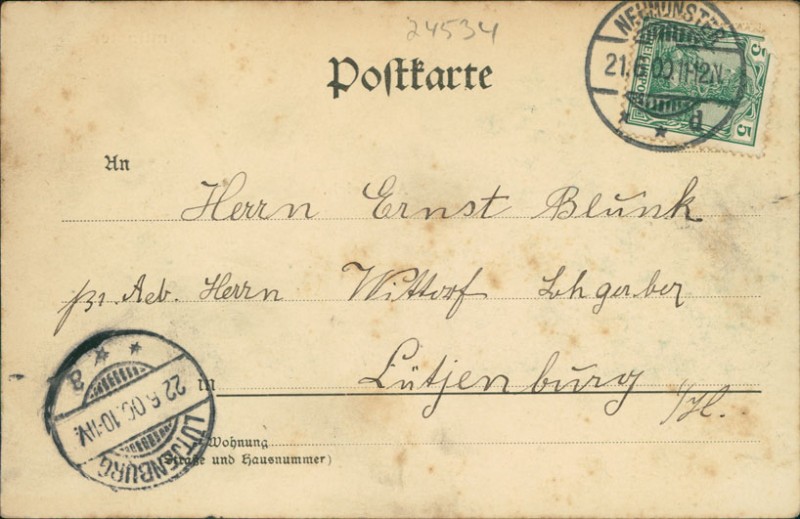 24534
NEUMÜNSTER
21.6.00.11-12N.
REICHSPOST
5
5
Postkarte
An
Herrn Ernst Blunk
pr. Adr. Herrn Wittorf Lohgerber
in Lütjenburg
i/Hl.
a
22.6.00.10-11V.
LÜTJENBURG
Wohnung
(Straße und Hausnummer)